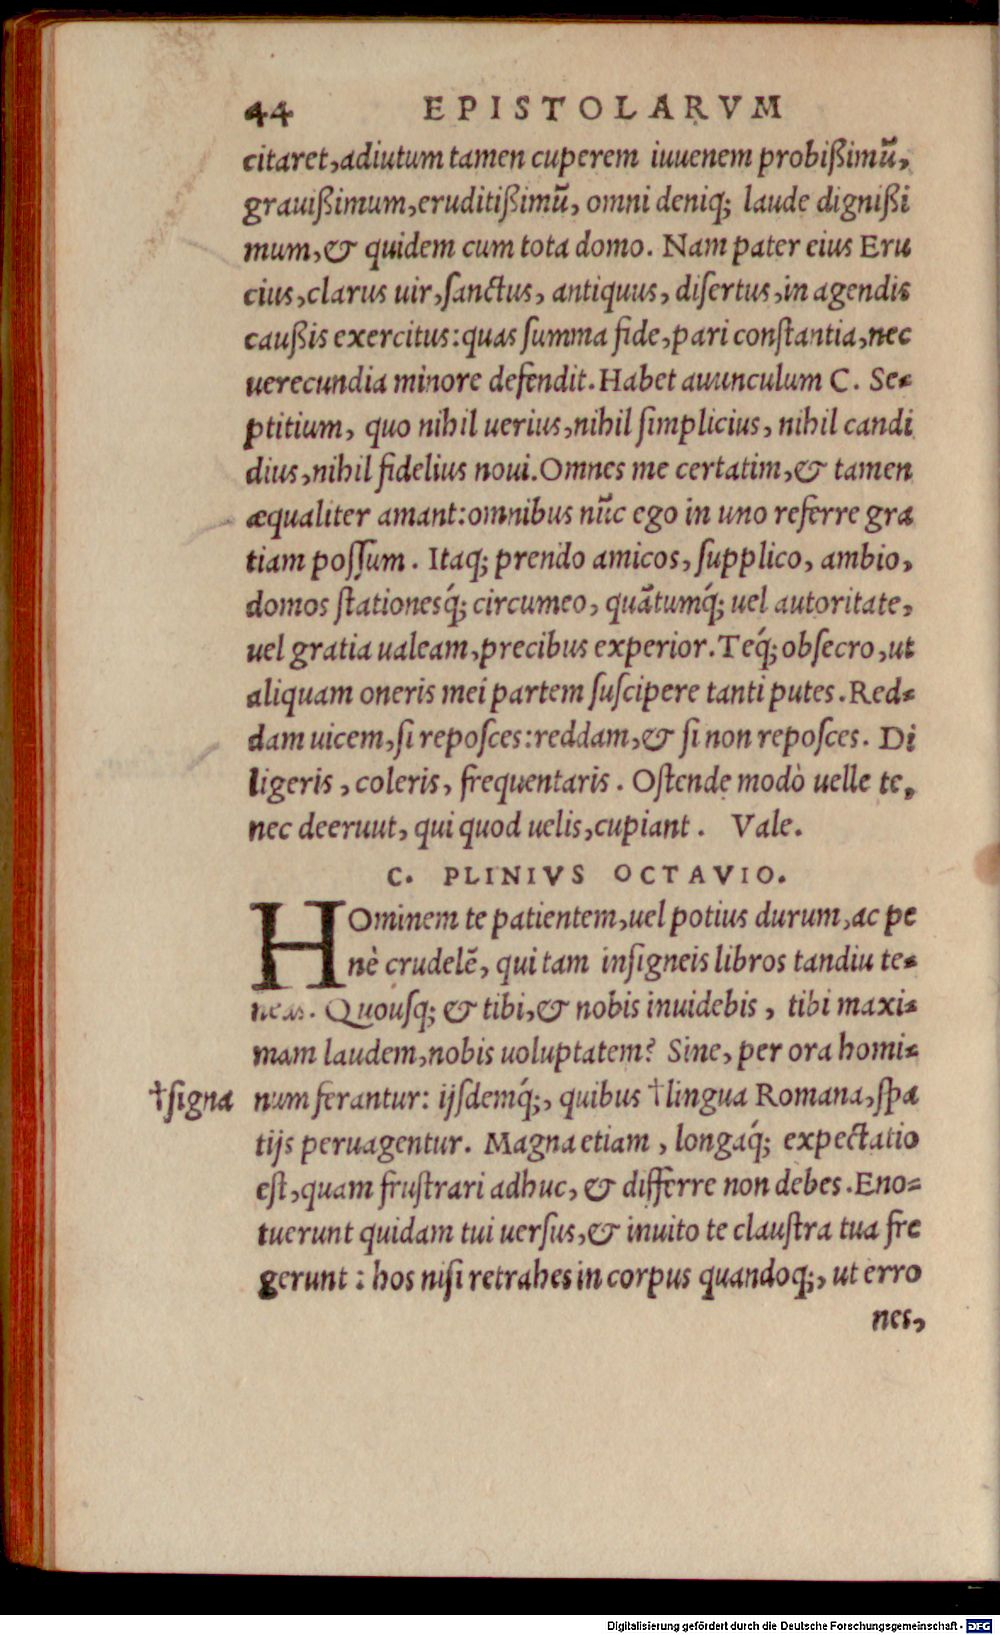 44 EPISTOLARVM
citaret, adiutum tamen cuperem iuuenem probißimũ,
grauißimum, eruditißimũ, omni deniq; laude dignißi
mum, & quidem cum tota domo. Nam pater eius Eru
cius, clarus uir, ſanctus, antiquus, diſertus, in agendis
caußis exercitus: quas ſumma fide, pari conſtantia, nec
uerecundia minore defendit. Habet auunculum C. Se-
ptitium, quo nihil uerius, nihil ſimplicius, nihil candi
dius, nihil fidelius noui. Omnes me certatim, & tamen
æqualiter amant: omnibus nũc ego in uno referre gra
tiam poſſum. Itaq; prendo amicos, ſupplico, ambio,
domos ſtationesq́; circumeo, quãtumq́; uel autoritate,
uel gratia ualeam, precibus experior. Teq́; obſecro, ut
aliquam oneris mei partem ſuſcipere tanti putes. Red-
dam uicem, ſi repoſces: reddam, & ſi non repoſces. Di
ligeris, coleris, frequentaris. Oſtende modò uelle te,
nec deeruut, qui quod uelis, cupiant. Vale.
C. PLINIVS OCTAVIO.
HOminem te patientem, uel potius durum, ac pe
nè crudelẽ, qui tam inſigneis libros tandiu te-
neas. Quouſq; & tibi, & nobis inuidebis, tibi maxi-
mam laudem, nobis uoluptatem? Sine, per ora homi-
†ſigna num ferantur: ijſdemq́;, quibus †lingua Romana, ſpa
tijs peruagentur. Magna etiam, longaq́; expectatio
eſt, quam fruſtrari adhuc, & differre non debes. Eno-
tuerunt quidam tui uerſus, & inuito te clauſtra tua fre
gerunt: hos niſi retrahes in corpus quandoq;, ut erro
nes,
Digitalisierung gefördert durch die Deutsche Forschungsgemeinschaft - DFG